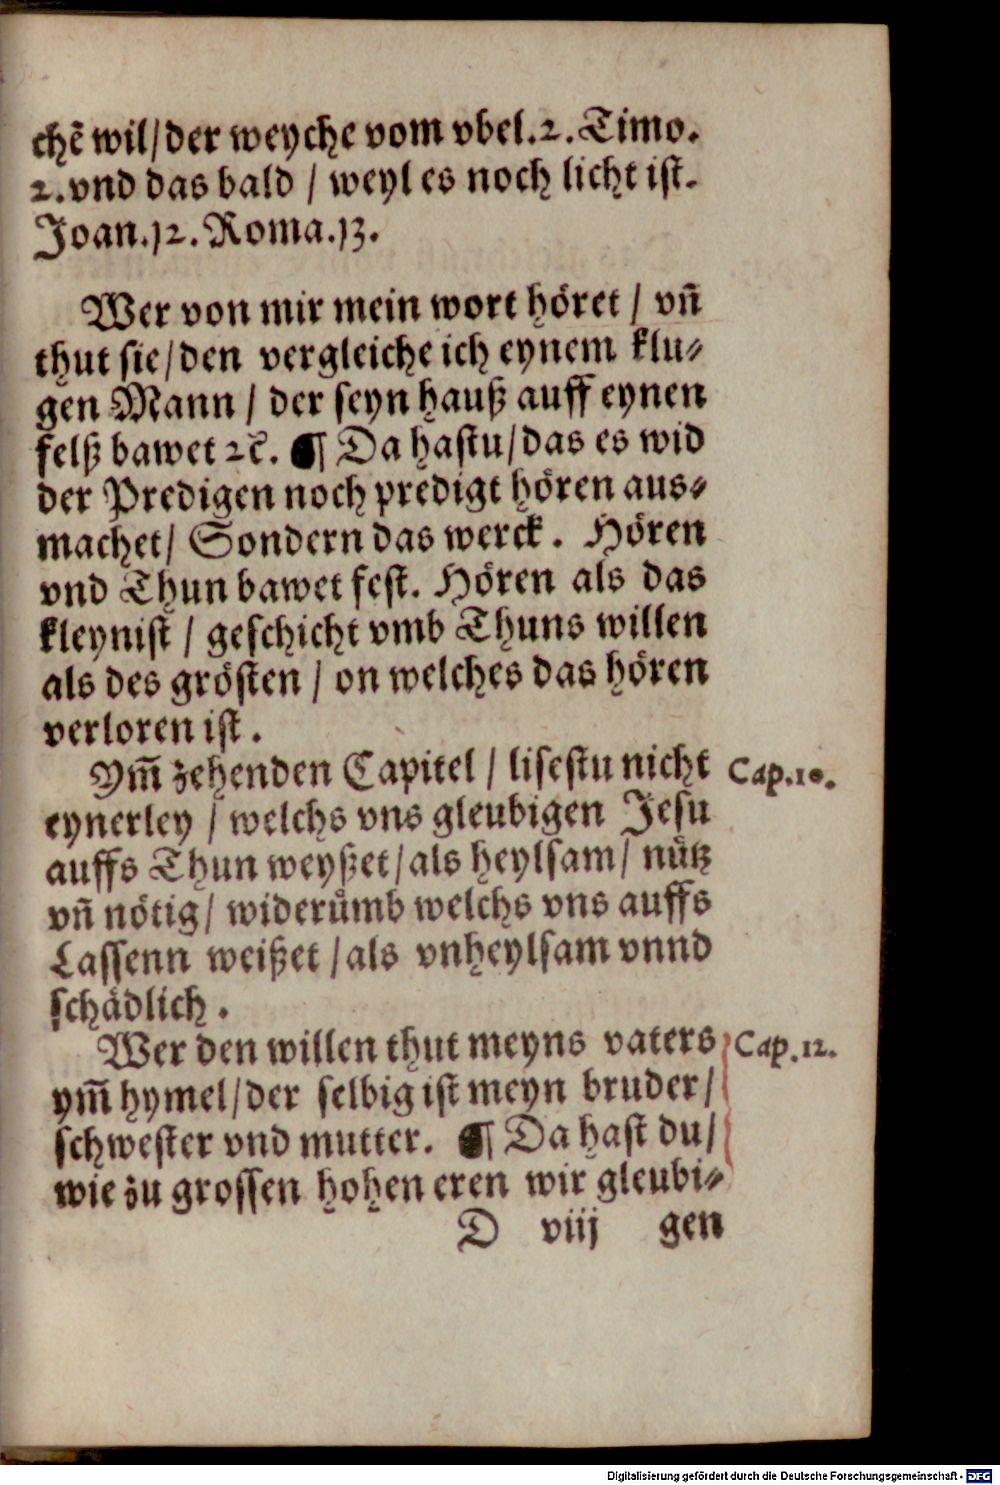 chẽ wil/der weyche vom vbel.2.Timo.
2.vnd das bald / weyl es noch licht ist.
Joan.12.Roma.13.
Wer von mir mein wort höret / vñ
thut sie/den vergleiche ich eynem klu⸗
gen Mann / der seyn hauß auff eynen
felß bawet ꝛc̃. ¶ Da hastu/das es wid
der Predigen noch predigt hören aus⸗
machet/ Sondern das werck. Hören
vnd Thun bawet fest. Hören als das
kleynist / geschicht vmb Thuns willen
als des grösten / on welches das hören
verloren ist.
Ym̃ zehenden Capitel / lisestu nicht
Cap.10.
eynerley / welchs vns gleubigen Jesu
auffs Thun weyßet/als heylsam/ nütz
vñ nötig/ widerůmb welchs vns auffs
Lassenn weißet /als vnheylsam vnnd
schädlich.
Wer den willen thut meyns vaters
Cap.12.
ym̃ hymel/der selbig ist meyn bruder/
schwester vnd mutter. ¶ Da hast du/
wie zu grossen hohen eren wir gleubi⸗
D viij gen
Digitalisierung gefördert durch die Deutsche Forschungsgemeinschaft - DFG